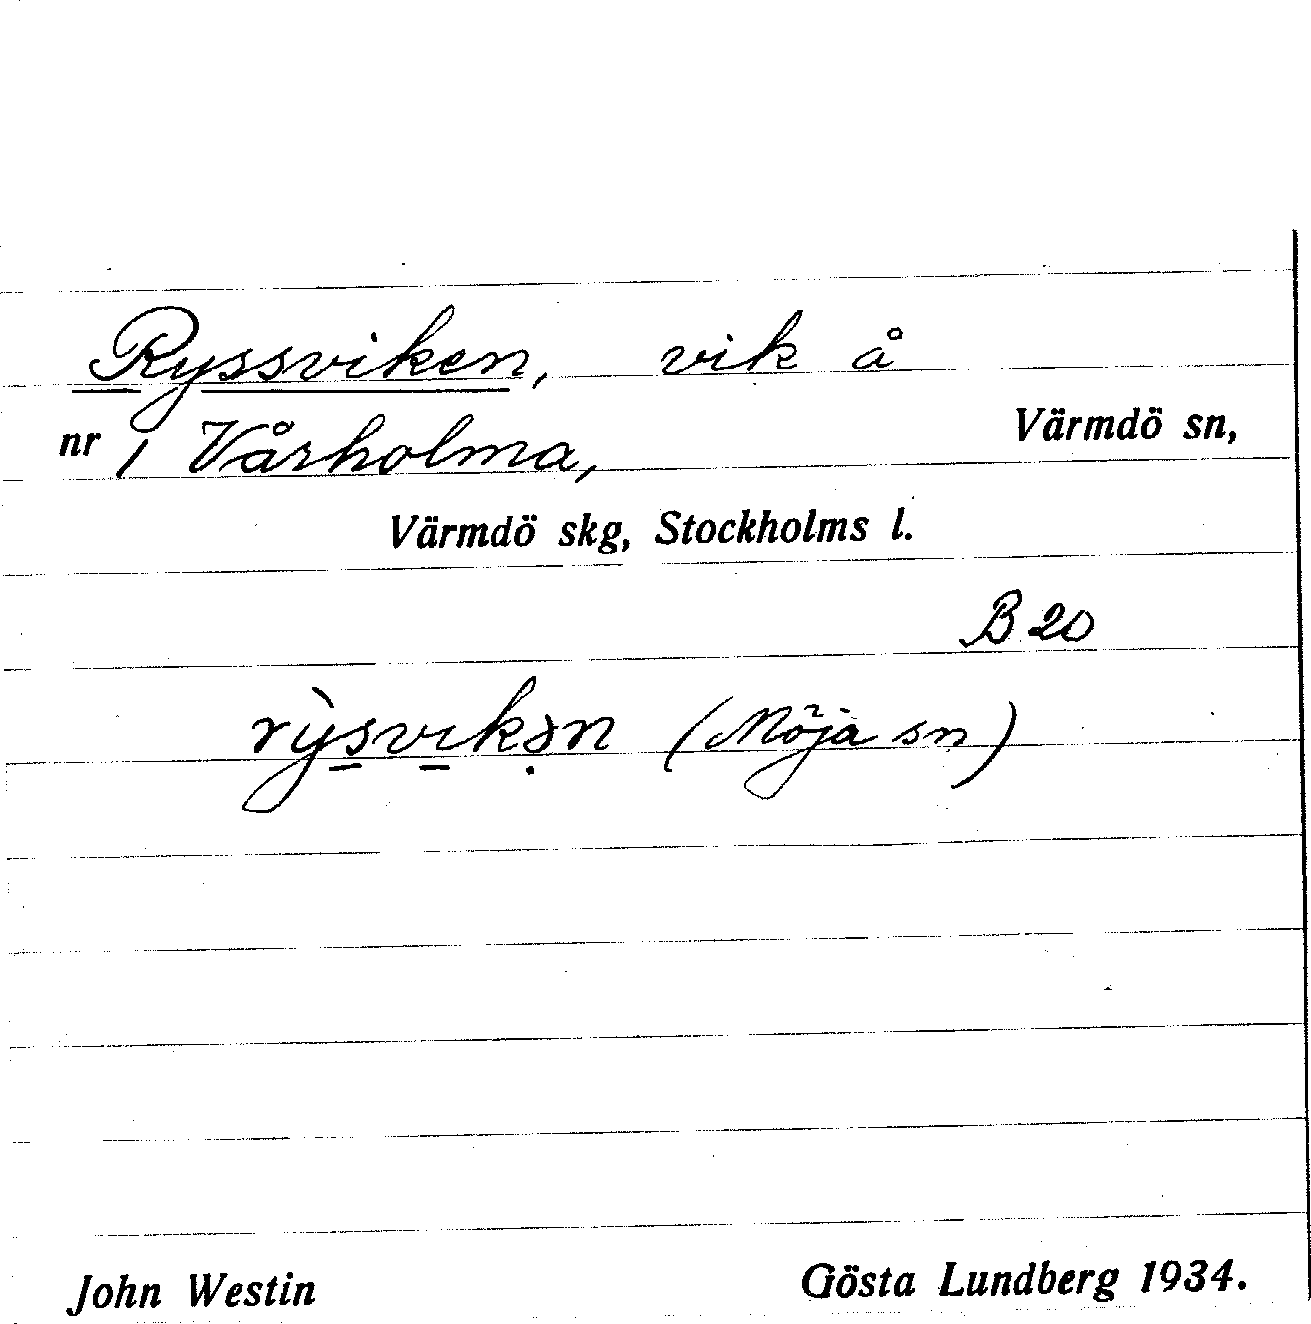 Ryssviken, vik å
nr 1 Vårholma, Värmdö sn,
Värmdö skg, Stockholms l.
B 20
rỳs̱vi̱kə̣n (Möja sn)
John Westin Gösta Lundberg 1934.